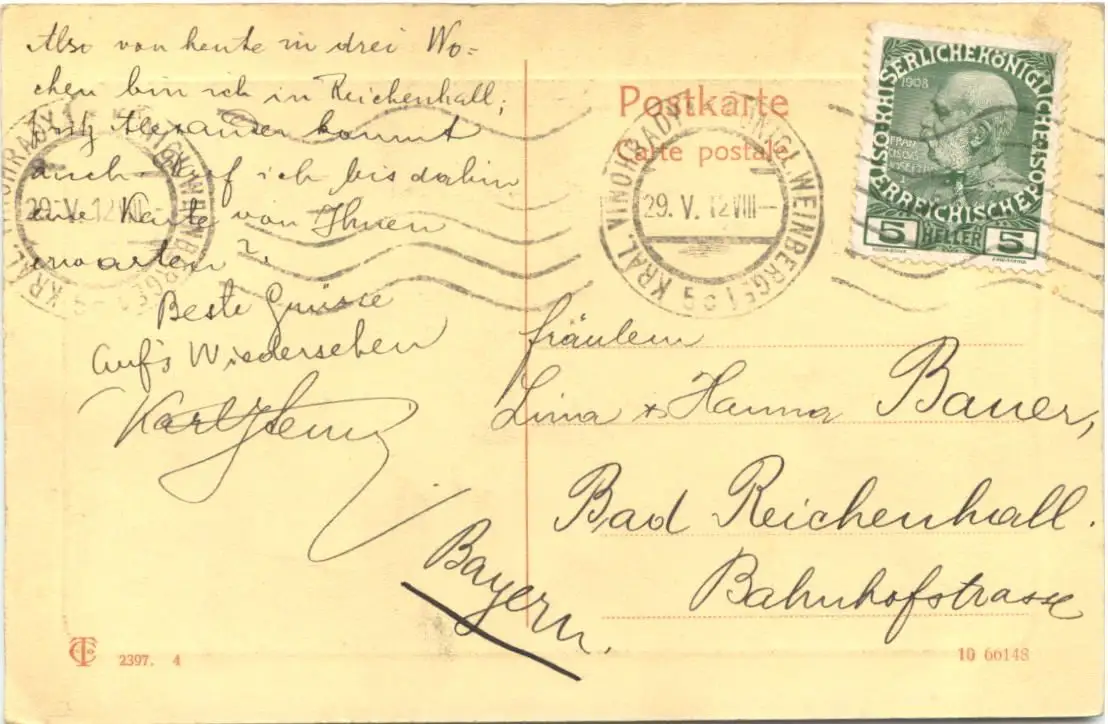 Also von heute in drei Wo=
chen bin ich in Reichenhall;
Fritz Alexander kommt
auch. Darf ich bis dahin
eine Karte von Ihnen
erwarten?
Beste Grüsse
auf's Wiedersehen
Postkarte
Carte postale
KRÁL. VINOHRADY KÖNIGL. WEINBERGE
29. V. 12 VIII–
KRÁL. VINOHRADY KÖNIGL. WEINBERGE
29. V. 12 VIII–
KAISERLICHEKÖNIGLICHE
ÖSTERREICHISCHE
1908
5 HELLER 5
Fräulein
Lina & Hanna Bauer,
Bad Reichenhall.
Bahnhofstrasse
Bayern.
2397. 4
10 66148